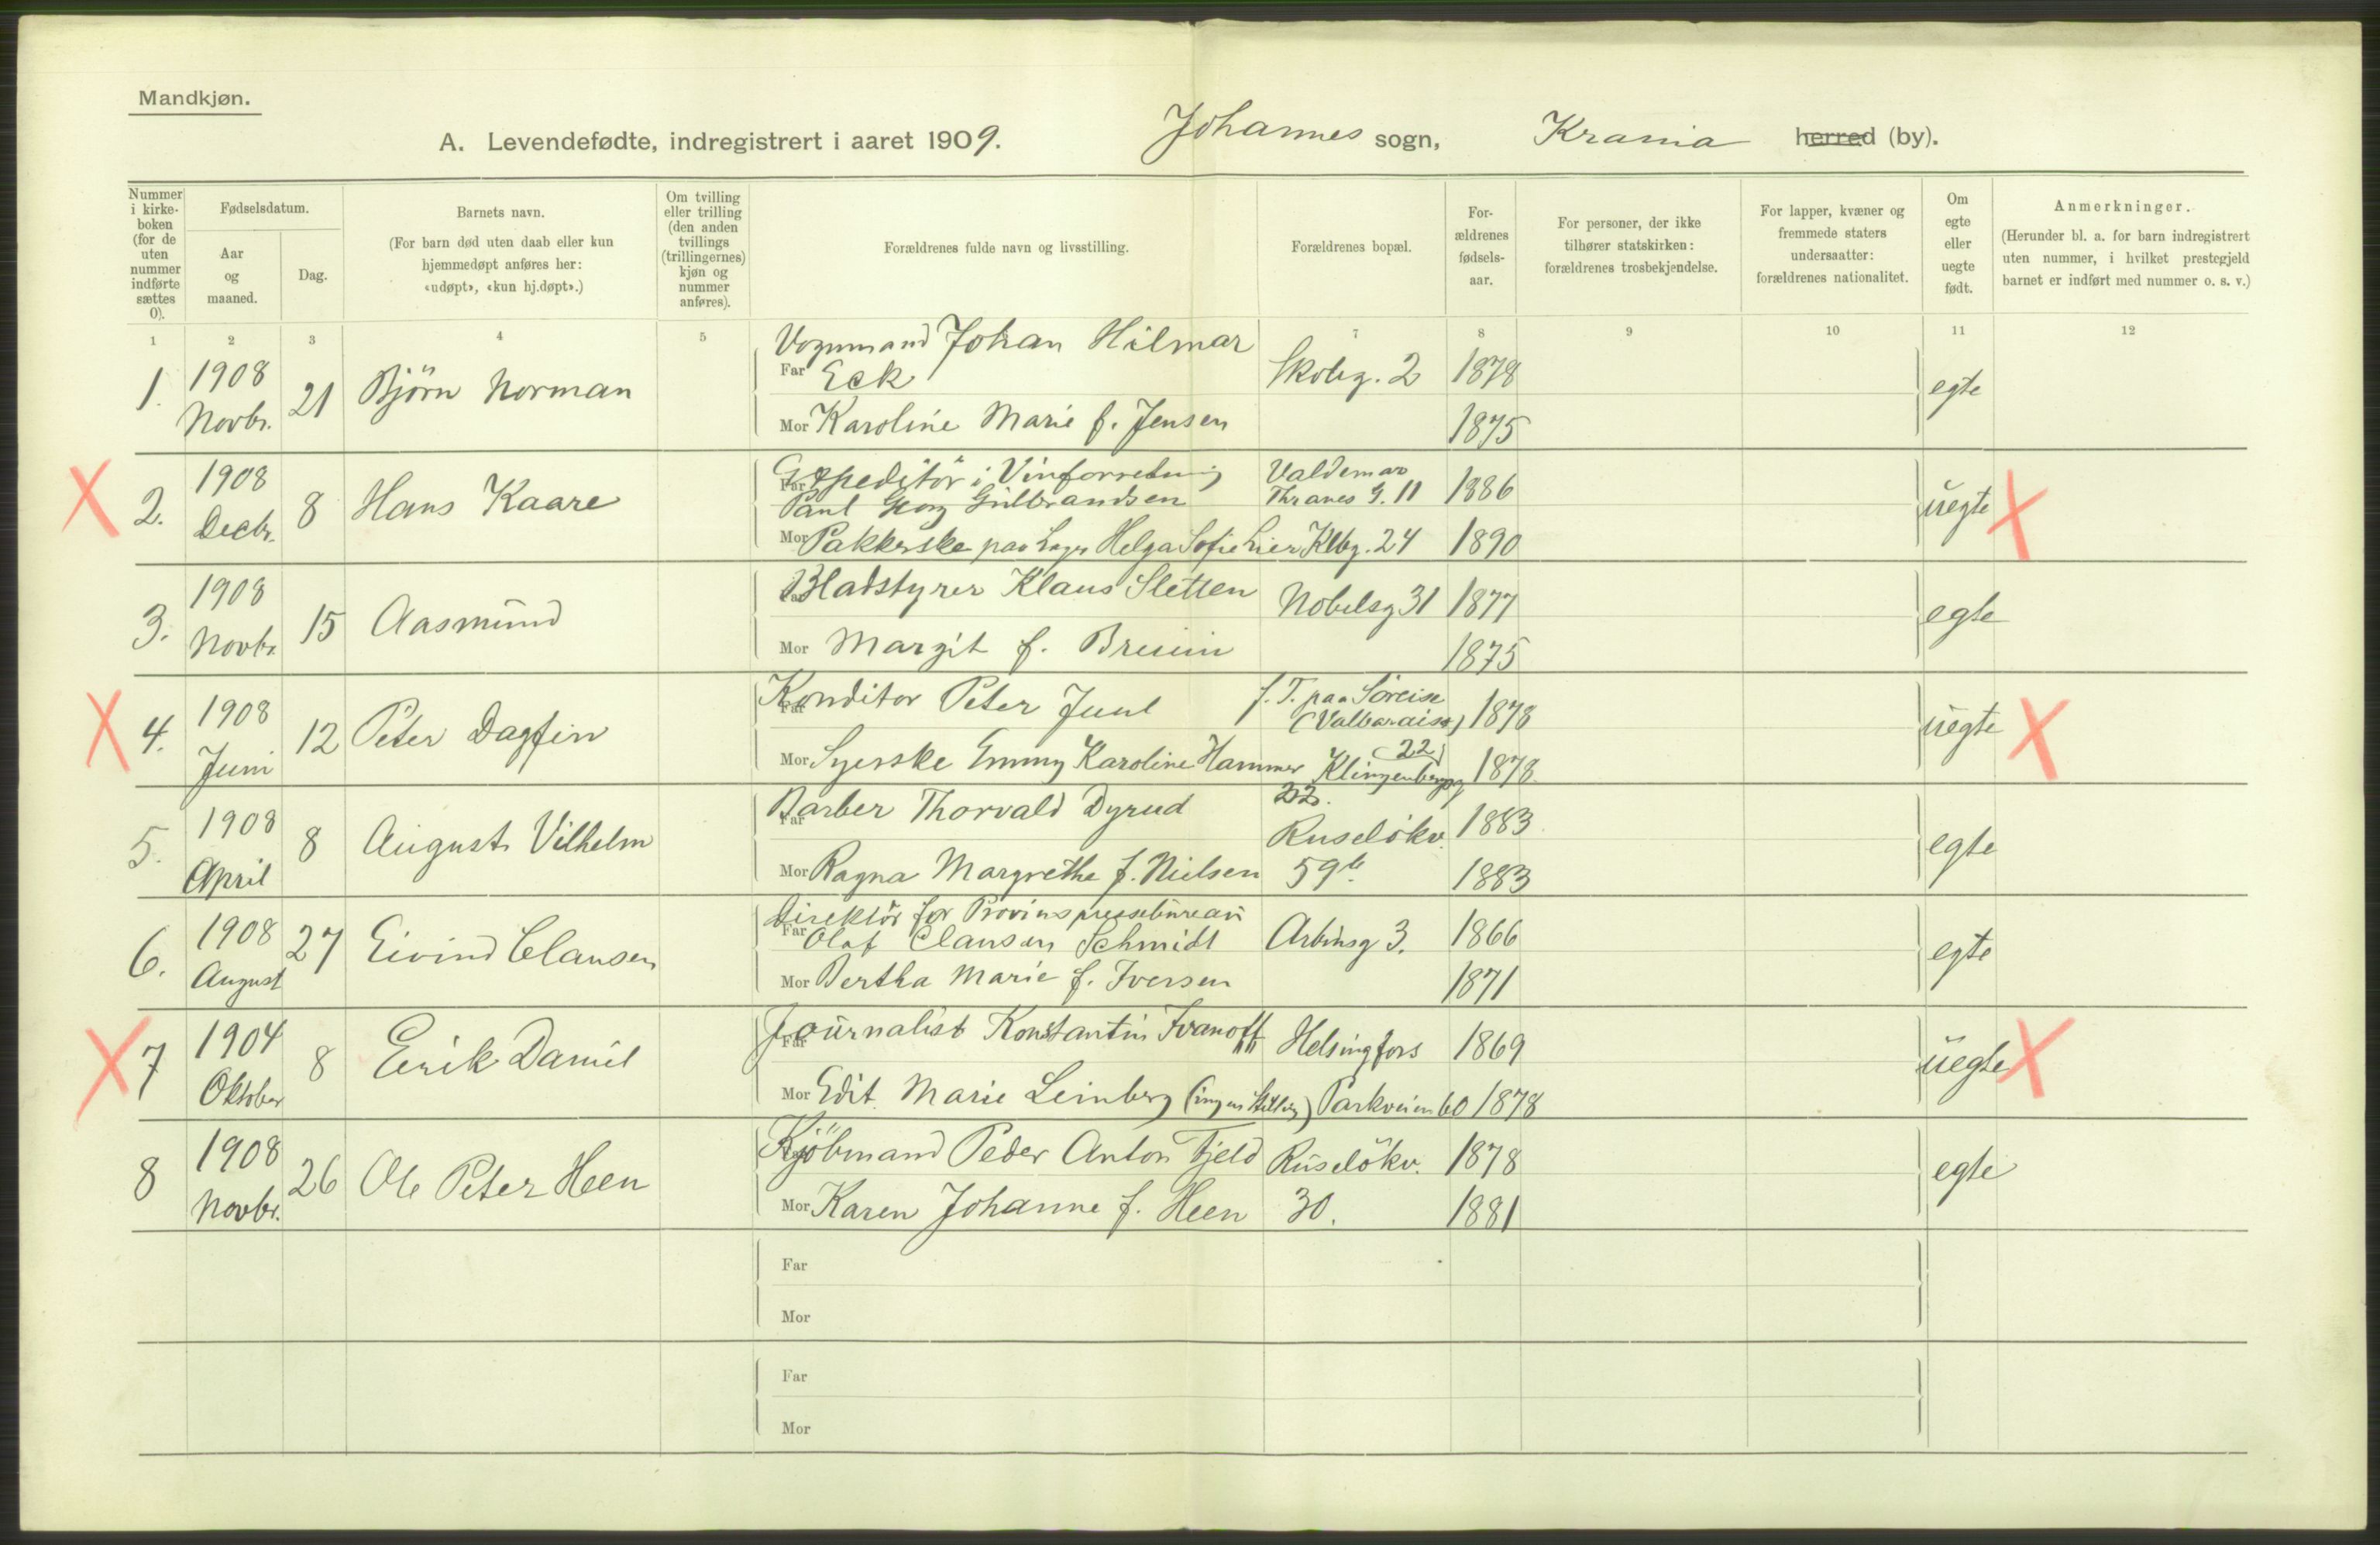 Mandkjøn.
A. Levendefødte, indregistrert i aaret 1909. Johannes sogn, Krania herred (by).
Nummer i kirke- boken (for de uten nummer indførte sættes 0).
Fødselsdatum.
Aar og maaned.
Dag.
Barnets navn.
(For barn død uten daab eller kun hjemmedøpt anføres her: «udøpt», «kun hj.døpt».)
Om tvilling eller trilling (den anden tvillings (trillingernes) kjøn og nummer anføres).
Forældrenes fulde navn og livsstilling.
Forældrenes bopæl.
For- ældrenes fødsels- aar.
For personer, der ikke tilhører statskirken: forældrenes trosbekjendelse.
For lapper, kvæner og fremmede staters undersaatter: forældrenes nationalitet.
Om egte eller uegte født.
Anmerkninger.
(Herunder bl. a. for barn indregistrert uten nummer, i hvilket prestegjeld barnet er indført med nummer o. s. v.)
1 2 3 4 5 7 8 9 10 11 12
1. 1908 Novbr. 21 Björn Norman
Vognmand Johan Hilmar
Far Eck Skobg. 2 1878 egte
Mor Karoline Marie f. Jensen 1875
X 2. 1908 Decbr. 8 Hans Kaare
Far Expeditör i Vinforretning Valdemar
Paul Georg Gulbrandsen Thranes G. 11 1886 uegte X
Mor Pakkerske paa Lager Helga Sofie Lier Klbg. 24 1890
3. 1908 Novbr. 15 Aasmund
Far Bladstyrer Klaus Sletten Nobelsg 31 1877 egte
Mor Margit f. Breuin 1875
X 4. 1908 Juni 12 Peter Dagfin
Far Konditor Peter Juul f. T. paa Söreise
(Valbaraiso) 1878 uegte X
Mor Syerske Emmy Karoline Hammer Klingenbergg (22) 1878
22.
5. 1908 April 8 August Vilhelm
Far Barber Thorvald Dyrud Ruselökv. 1883 egte
Mor Ragna Margrethe f. Nielsen 59b. 1883
6. 1908 August 27 Eivind Clausen
Direktör for Provinspressebureau
Far Olaf Clausen Schmidt Arbinsg 3. 1866 egte
Mor Bertha Marie f. Iversen 1871
X 7 1904 Oktober 8 Erik Daniel
Far Journalist Konstantin Ivanoff Helsingfors 1869 uegte X
Mor Edit Marie Leinberg (ingen Stilling) Parkveien 60 1878
8 1908 Novbr. 26 Ole Peter Heen
Kjöbmand Peder Anton Fjeld Ruselökv. 1878 egte
Mor Karen Johanne f. Heen 30. 1881
Far
Mor
Far
Mor